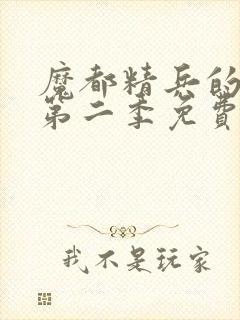 魔都精兵的
第二季免費
我不是玩家